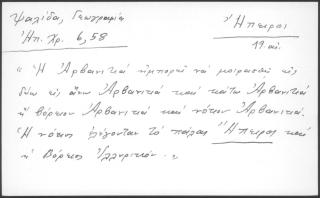 Ψαλίδας, Γεωγραφία
Ἠπ. Χρ. 6, 58
Ἤπειρος
19 αἰ.
" Ἡ Ἀρβανιτιά ἠμπορεῖ νά μοιρασθῇ εἰς
δύω εἰς ἄνω Ἀρβανιτιά καί κάτω Ἀρβανιτιά
ἤ βόρειον Ἀρβανιτιά καί νότιον Ἀρβανιτιά.
Ἡ νότιος λέγονταν τό πάλαι Ἤπειρος καί
ἡ Βόρειος Ἰλλυρικόν. "